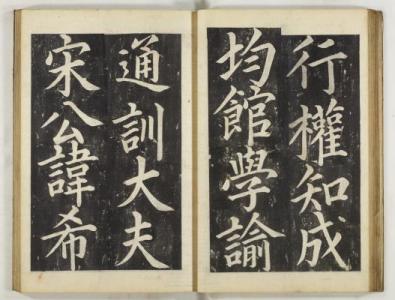 行權知成
均館學諭
通訓大夫
宋公諱希